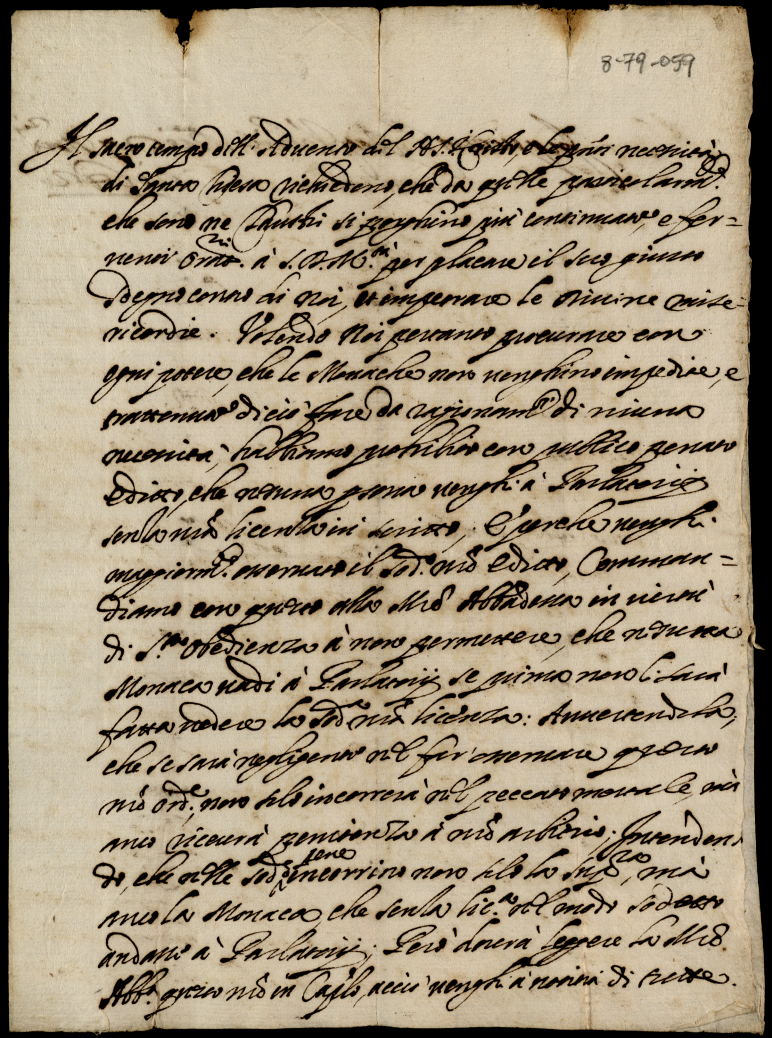 8-79-059
Il sacro tempo dell' Advento del N. S. Christo, e le pñti necessità
di Santa Chiesa richiedono, che da quelle particolarmte.
che sono ne Claustri si porghino più continuate, e fer=
venti Orat.ni à S. D. M.tà per placare il suo giusto
sdegno contro di noi, et impetrare le divine mise=
ricordie. Volendo Noi pertanto procurare con
ogni potere, che le Monache non venghino impedite, e
trattenute di ciò fare da ragionam.ti di niuna
necessità, habbiamo prohibito con publico penato
Editto, che nessuna psona venghi à Parlatorij
senza nr̃a licenza in scritto, E perche venghi
maggiorm.te osservato il sod.o nr̃o Editto, Comman=
diamo con questo alla M.re Abbadessa in virtù
di S.ta obedienza à non permettere, che nessuna
Monaca vadi à Parlatorij se prima non li sarà
fatta vedere la sod.a nr̃a licenza: Avvertendola,
che se sarà negligente nel far osservare questo
nr̃o ord.e, non solo incorrerà nel peccato mortale, mà
anco riceverà penitenza à nr̃o arbitrio; Intenden
do, che nelle sod.e pene incorrino non solo la Sup.ra, mà
anco la Monaca che senza lic.a nel modo sodetto
andasse à Parlatorij; Però dovrà leggere la M.re
Abb.a questo nr̃o in Caplo, acciò venghi à notitia di tutte.